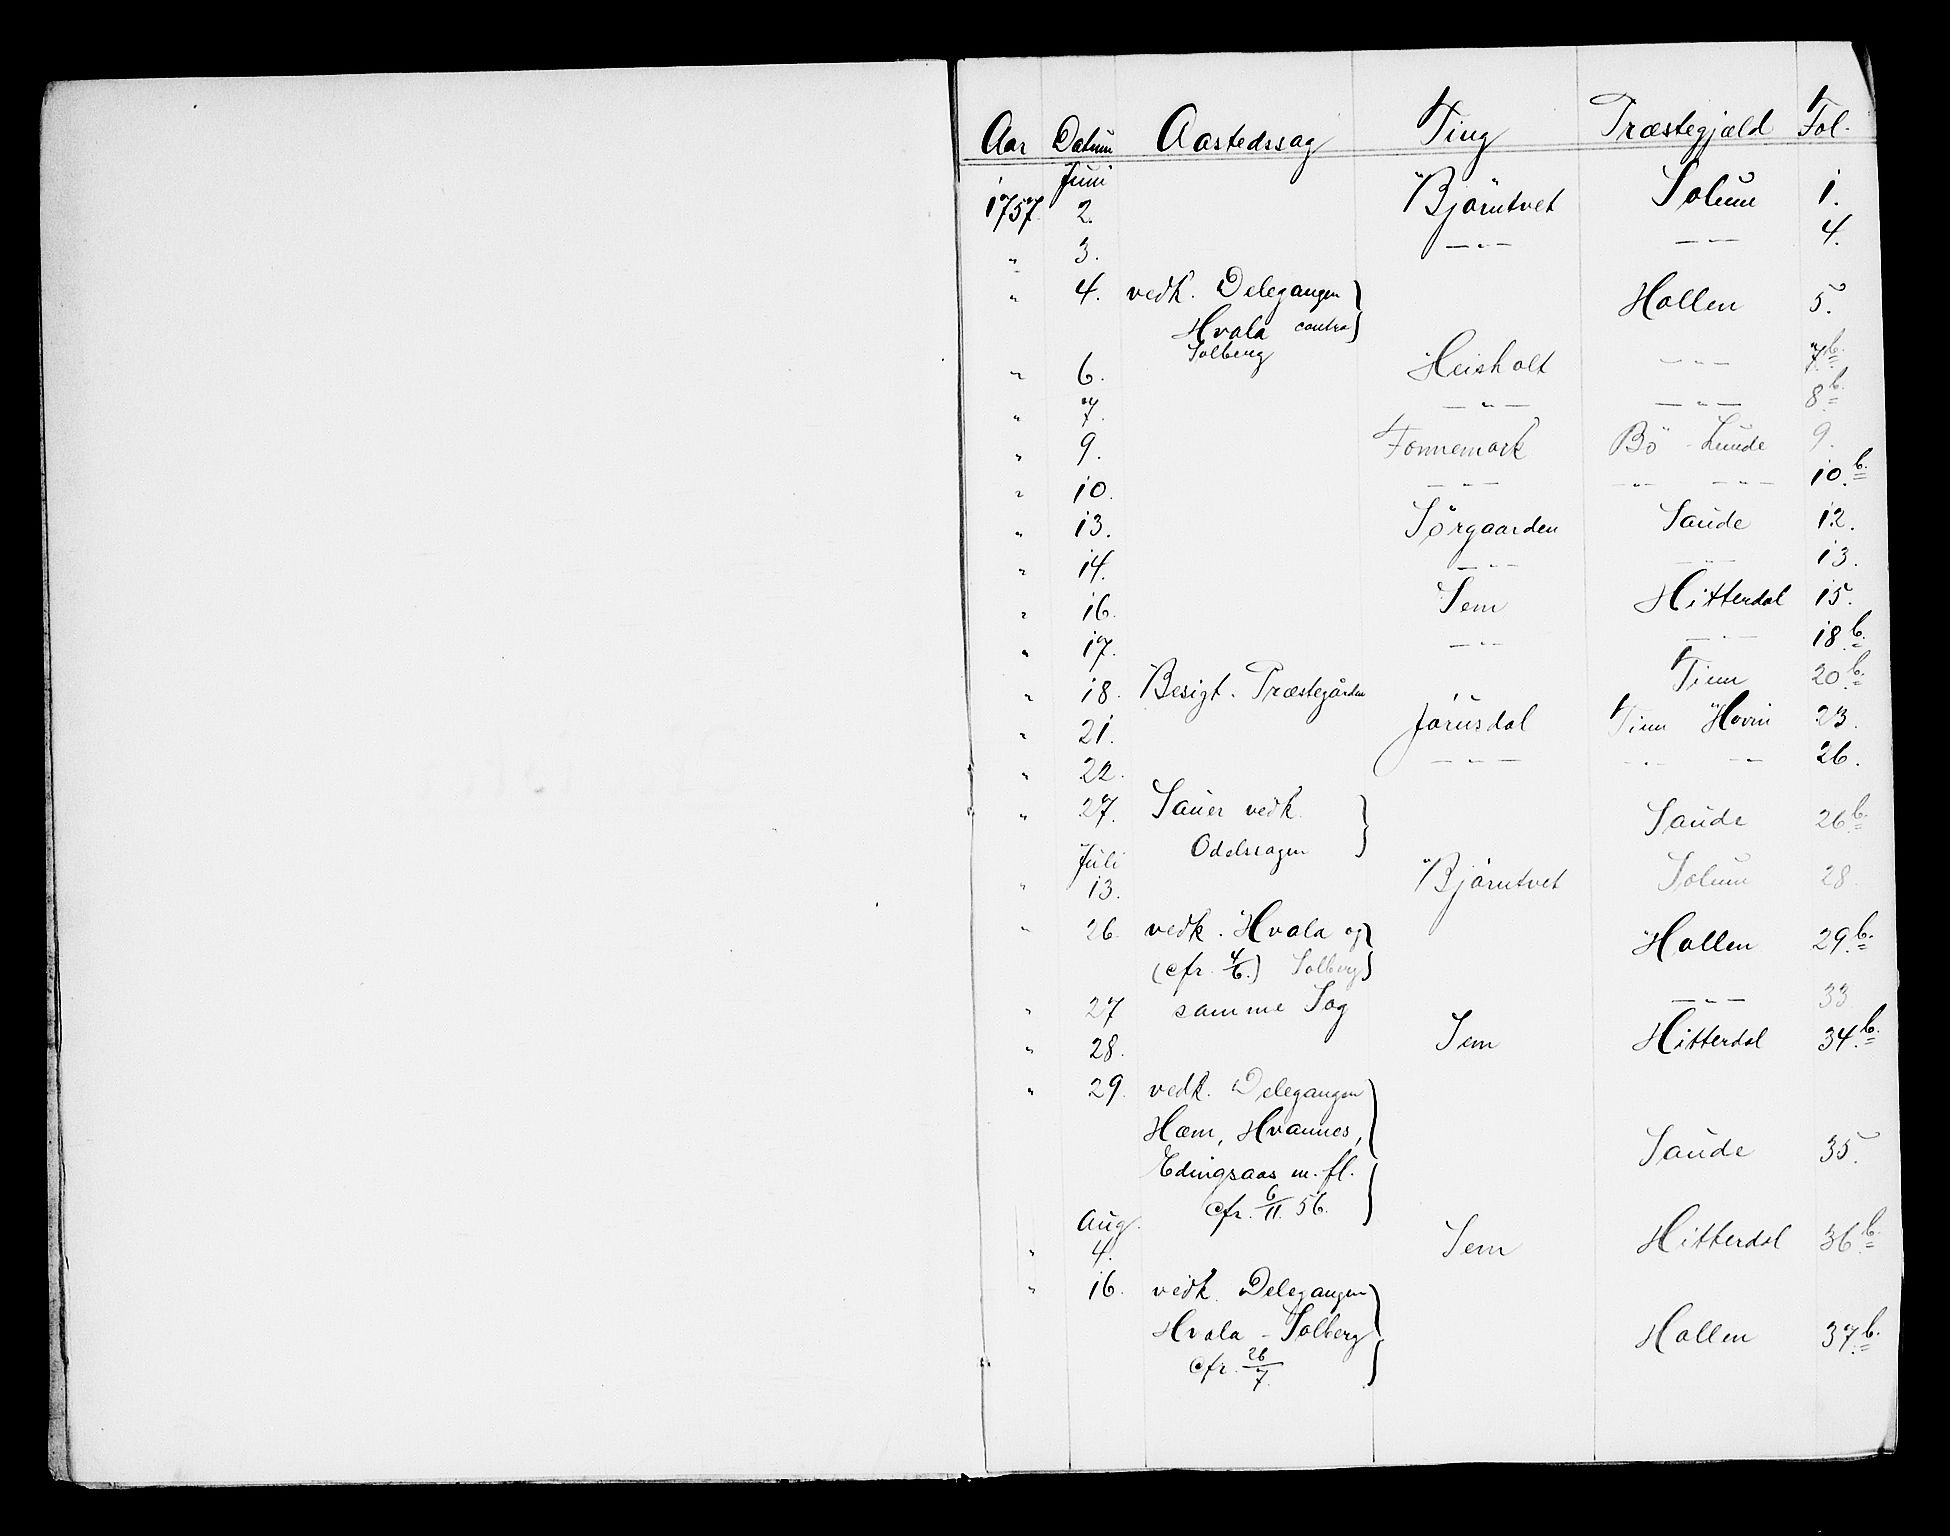 Aar Datum Aastedssag Ting Præstegjæld Fol.
Juni
1757 2. Björntvet Solum 1.
" 3. —"— —"— 4.
" 4. vedk. Delegangen Hollen 5.
Hvala contra
Solberg
" 6. Heisholt —"— 7b.
" 7. —"— —"— 8b.
" 9. Fonnemark Bö - Lunde 9.
" 10. —"— —"— —"— 10b.
" 13. Sörgaarden Saude 12.
" 14. —"— —"— 13.
" 16. Sem Hitterdal 15.
" 17. —"— —"— 18b.
" 18. Besigt. Præstegården Tinn 20b.
" 21. Jörnsdal Tinn Hovin 23.
" 22. —"— —"— —"— 26.
" 27. Sauer vedk. Saude 26b.
Odelssagen
Juli
" 13. Björntvet Solum 28.
" 26. vedk. Hvala og Hollen 29b.
(cfr. 4/6.) Solberg
" 27 samme Sag —"— 33.
" 28. Sem Hitterdal 34b.
" 29. vedk. Delegangen
Hæm, Hvannes, Saude 35.
Edingsaas m. fl.
cfr. 6/11. 56.
Aug.
" 4. Sem Hitterdal 36b.
" 16. vedk. Delegangen
Hvala - Solberg Hollen 37b.
cfr. 26/7.